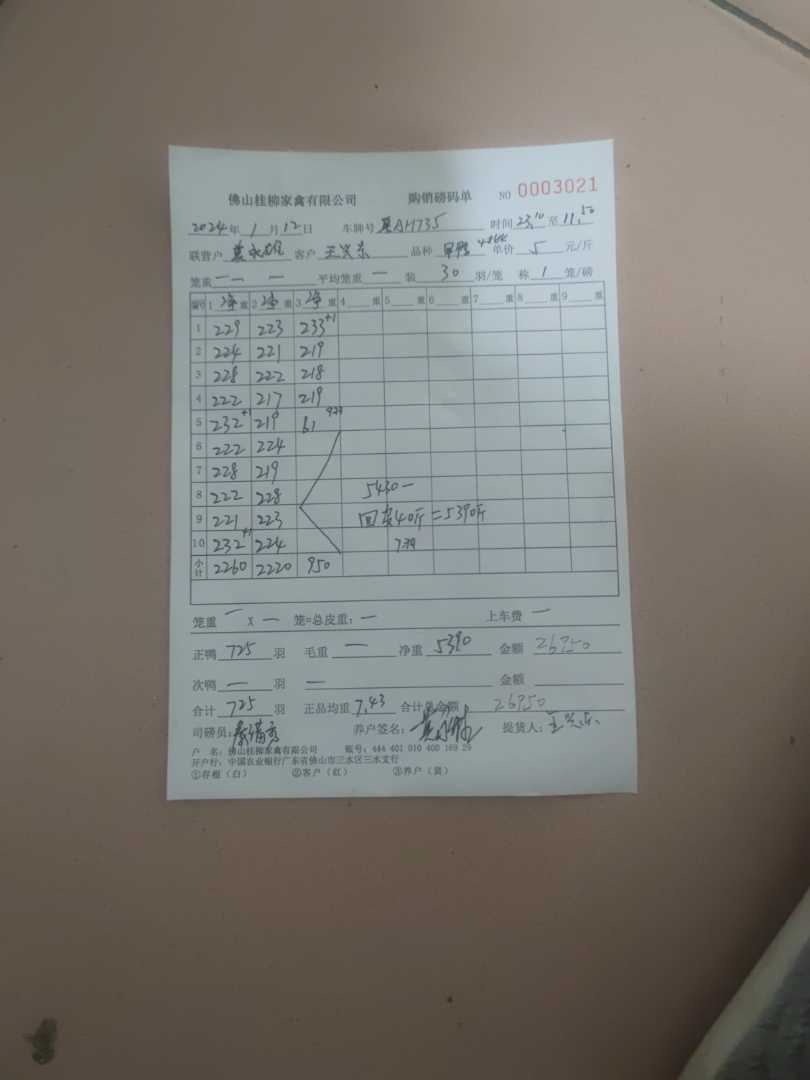 佛山桂柳家禽有限公司 购销磅码单 NO 0003021
2024年 1 月 12 日 车牌号 AH735 时间 23.10 至 11.50
联营户 客户 王兴东 品种 单价 5 元/斤
笼重 — — 平均笼重 — 装 30 羽/笼 称 1 笼/磅
编号 1 净 重 2 净 重 3 净 重 4 重 5 重 6 重 7 重 8 重 9 重
1 229 223 233+1
2 224 221 219
3 228 222 218
4 222 217 219
5 232+1 219 61
6 222 224
7 228 219
8 222 228 5430—
9 221 223 回皮40斤=5390斤
10 232+1 224
小计 2260 2220 950
笼重 — X — 笼=总皮重: — 上车费 —
正鸭 725 羽 毛重 — 净重 5390 金额 26950
次鸭 — 羽 — 金额
合计 725 羽 正品均重 7.43 合计总金额 26950
司磅员: 养户签名: 提货人: 王兴东
户 名: 佛山桂柳家禽有限公司 账号: 444 401 010 400 169 29
开户行: 中国农业银行广东省佛山市三水区三水支行
①存根(白) ②客户(红) ③养户(黄)